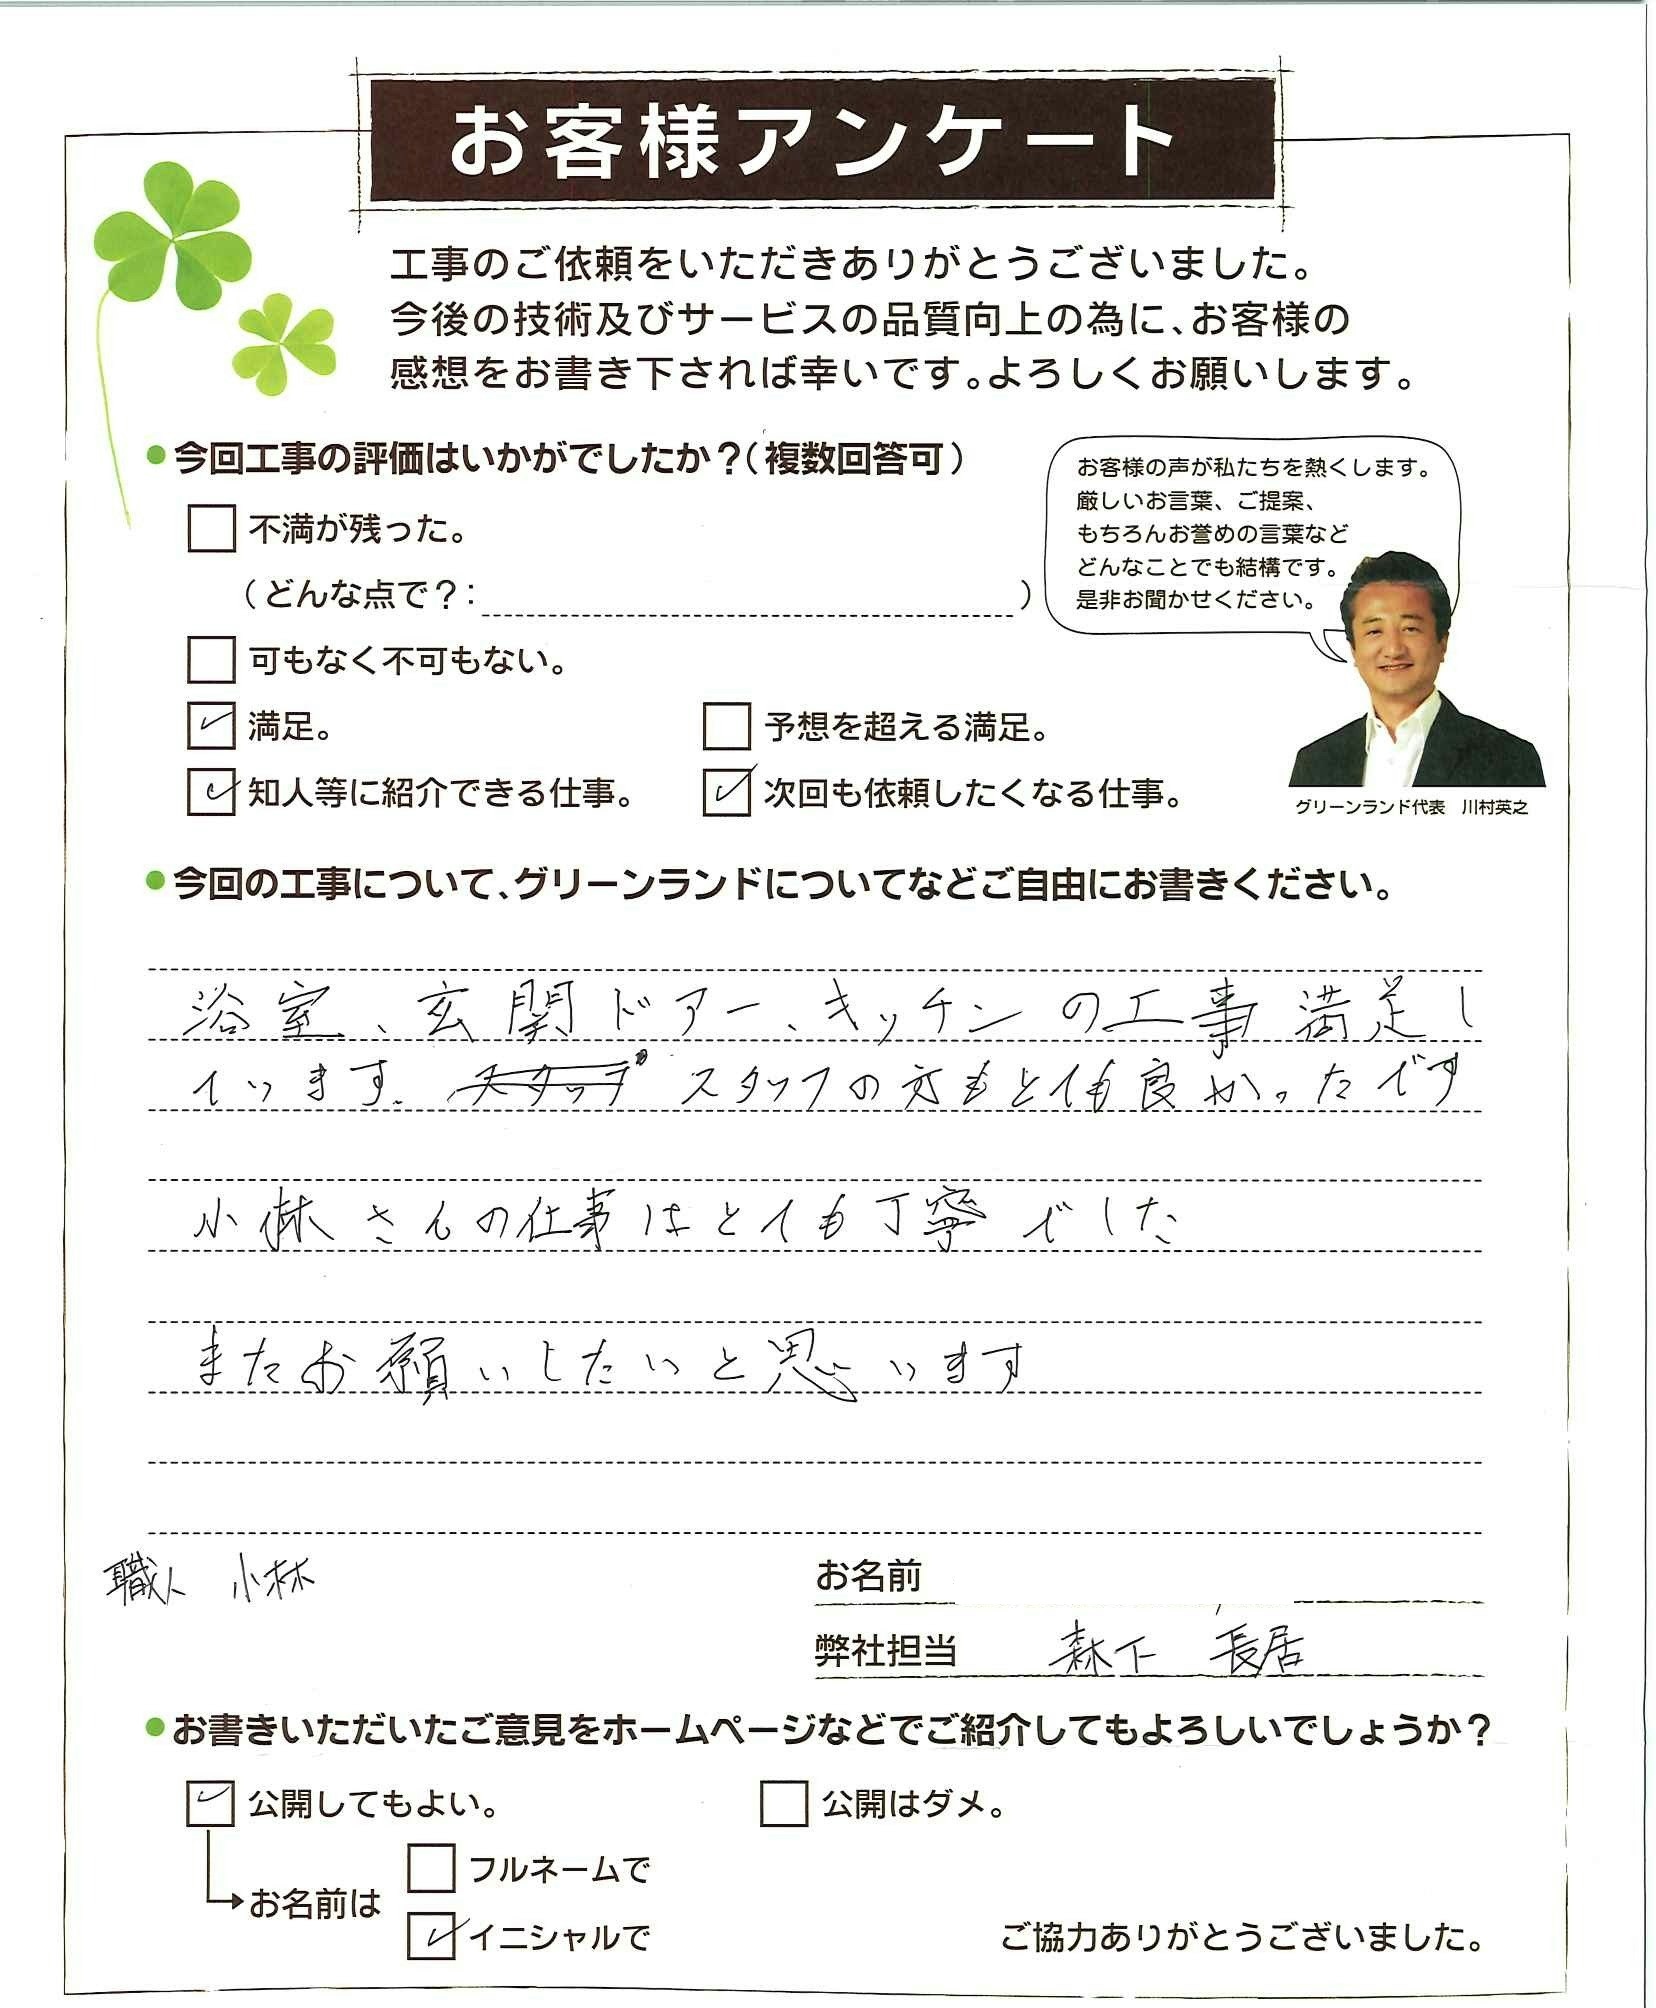 お客様アンケート
工事のご依頼をいただきありがとうございました。
今後の技術及びサービスの品質向上の為に、お客様の
感想をお書き下されば幸いです。よろしくお願いします。
●今回工事の評価はいかがでしたか？（複数回答可）
不満が残った。
（どんな点で？：　）
可もなく不可もない。
満足。
予想を超える満足。
知人等に紹介できる仕事。
次回も依頼したくなる仕事。
お客様の声が私たちを熱くします。
厳しいお言葉、ご提案、
もちろんお誉めの言葉など
どんなことでも結構です。
是非お聞かせください。
グリーンランド代表　川村英之
●今回の工事について、グリーンランドについてなどご自由にお書きください。
浴室、玄関ドアー、キッチンの工事満足し
ています。スタッフの方もとても良かったです
小林さんの仕事はとても丁寧でした
またお願いしたいと思います
職人　小林
お名前
弊社担当　森下　長居
●お書きいただいたご意見をホームページなどでご紹介してもよろしいでしょうか？
公開してもよい。
公開はダメ。
お名前は
フルネームで
イニシャルで
ご協力ありがとうございました。